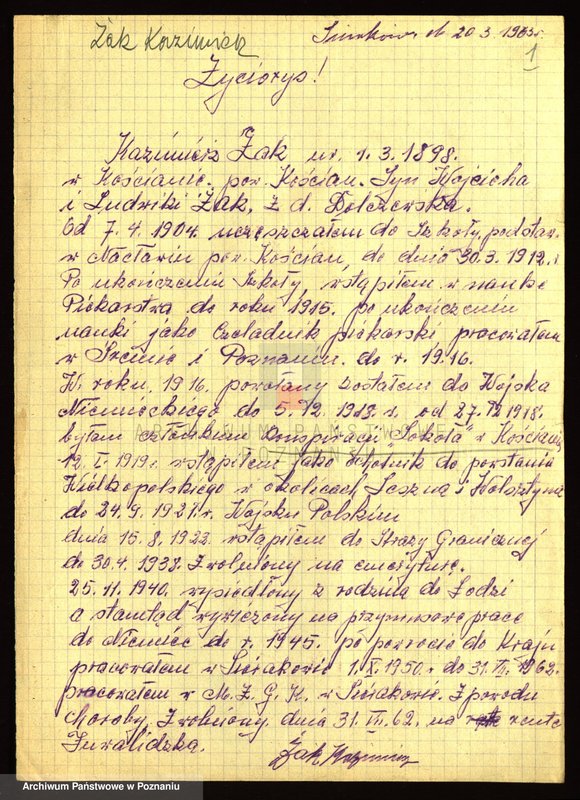 Żak Kazimierz
20.3.1983r.
1
Życiorys!
Kazimierz Żak ur. 1.3.1898.
w Kościanie. pow. Kościan. Syn Wojciecha
i Ludwiki Żak, z d. Dolczewska.
Od 7.4.1904. uczeszczałem do szkoły podstaw.
w Nacławiu pow. Kościan, do dnia 30.3.1912.r
Po ukończeniu szkoły, wstąpiłem w naukę
Piekarstwa do roku 1915. po ukończeniu
nauki jako Czeladnik piekarski pracowałem
w i Poznaniu. do r. 1916.
W. roku, 1916. powołany zostałem do Wojska
Niemieckiego do 5.12. r. od 27.12 1918r.
byłem członkiem Konspiracji "Sokoła" w Kościanie
12.I.1919r. wstąpiłem jako Ochotnik do powstania
Wielkopolskiego w okolicach Leszna i Wolsztyna
do 24.9.1921.r. Wojsku Polskim
dnia 15.8.1922. wstąpiłem do Straży Granicznej
do 30.4.1938. Zwolniony na emeryturę.
25.11.1940. wysiedlony z rodziną do Łodzi
a stamtąd wywieziony na przymusowe prace
do Niemiec do r. 1945. po powrocie do Kraju
pracowałem w Sierakowie 1.X.1950. do 31. 1962.
pracowałem w M.Z.G.K. w Sierakowie. Z powodu
Choroby, Zwolniony dnia 31. 62. na rentę
Inwalidzką.
Żak Kazimierz
ARCHIWUM PAŃSTWOWE
POZNAŃ
Archiwum Państwowe w Poznaniu